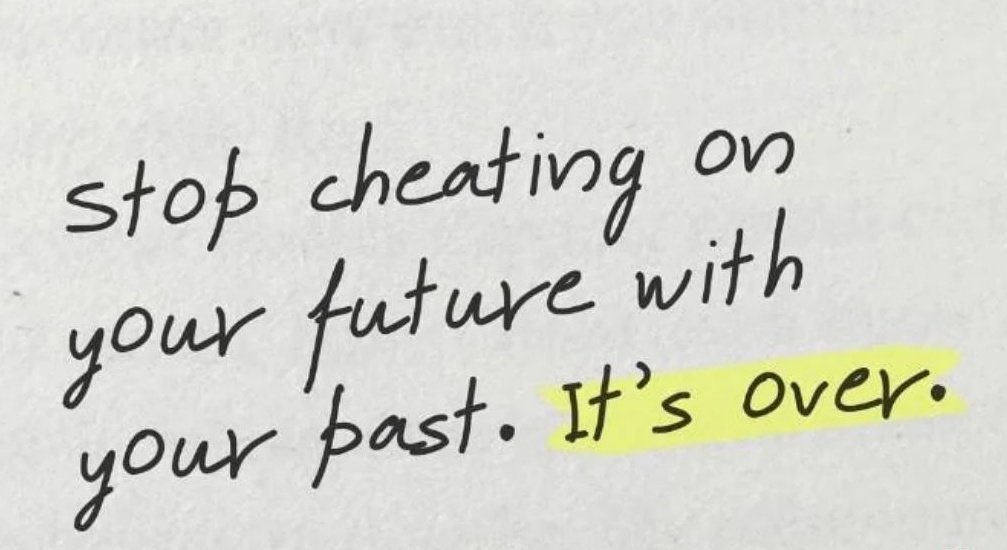 stop cheating on
your future with
your past. It's over.